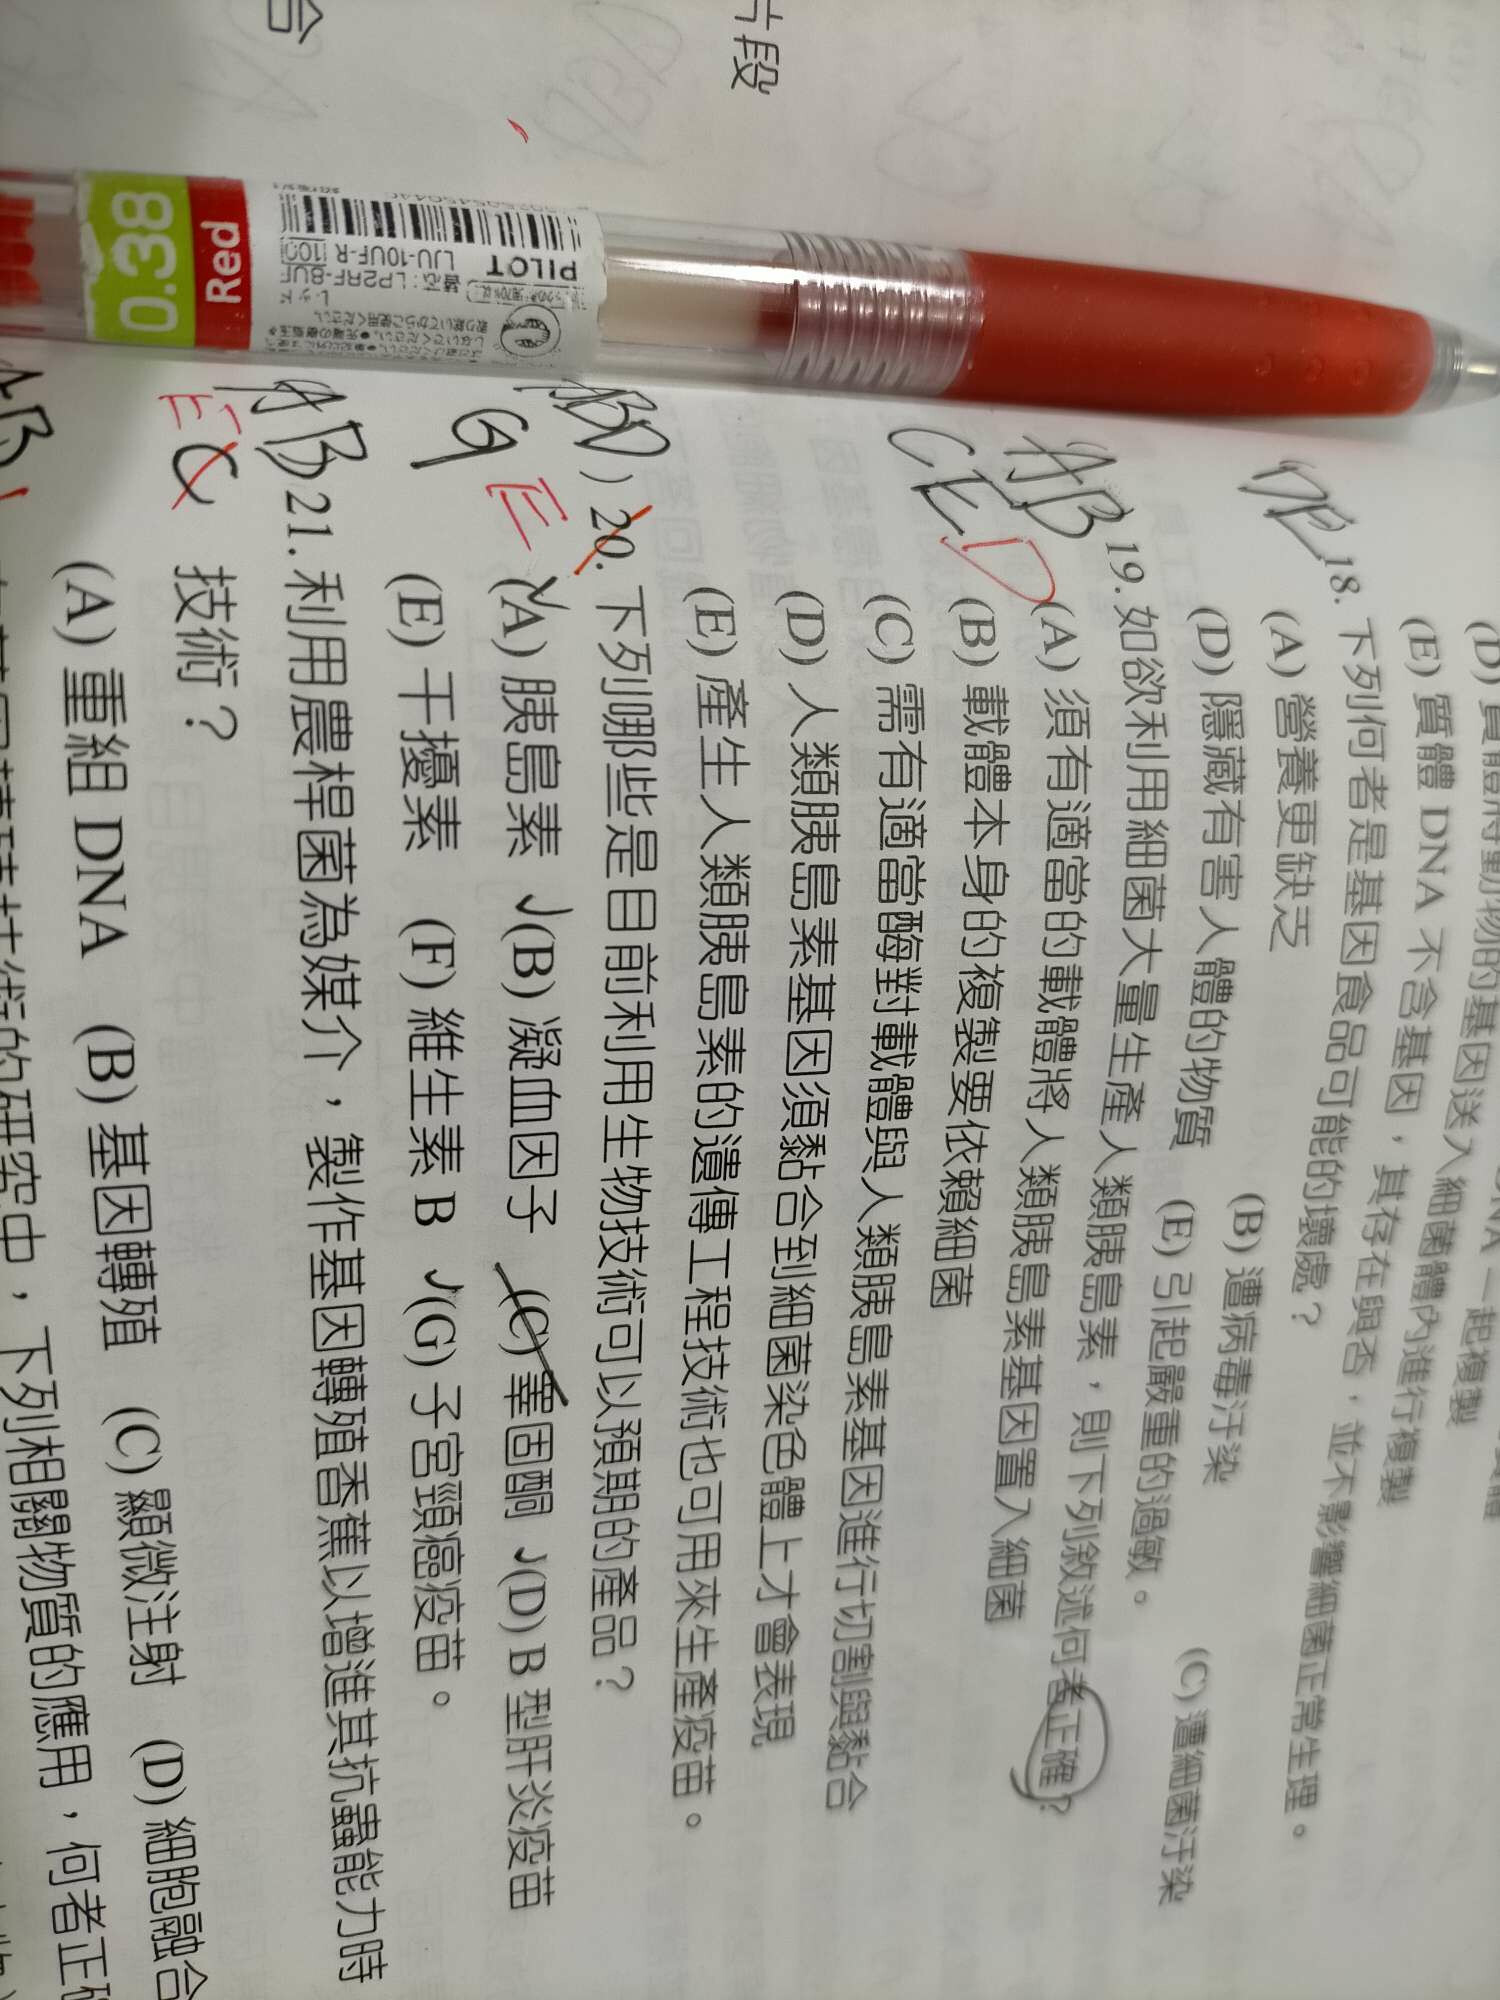 片段
合
0.38
Red
PILOT
LJU-10UF-R
替芯:LP2RF-8UF
レッド
(E) 質體 DNA 不含基因，其存在與否，並不影響細菌正常生理。
DE 18. 下列何者是基因食品可能的壞處？
(A) 營養更缺乏 (B) 遭病毒汙染 (C) 遭細菌汙染
(D) 隱藏有害人體的物質 (E) 引起嚴重的過敏。
AB
CE D
19. 如欲利用細菌大量生產人類胰島素，則下列敘述何者正確？
(A) 須有適當的載體將人類胰島素基因置入細菌
(B) 載體本身的複製要依賴細菌
(C) 需有適當酶對載體與人類胰島素基因進行切割與黏合
(D) 人類胰島素基因須黏合到細菌染色體上才會表現
(E) 產生人類胰島素的遺傳工程技術也可用來生產疫苗。
ABD ) 20. 下列哪些是目前利用生物技術可以預期的產品？
G E
(A) 胰島素 (B) 凝血因子 (C) 睪固酮 (D) B 型肝炎疫苗
(E) 干擾素 (F) 維生素 B (G) 子宮頸癌疫苗。
AB 21. 利用農桿菌為媒介，製作基因轉殖香蕉以增進其抗蟲能力時
E C 技術？
(A) 重組 DNA (B) 基因轉殖 (C) 顯微注射 (D) 細胞融合
AB
的研究中，下列相關物質的應用，何者正確